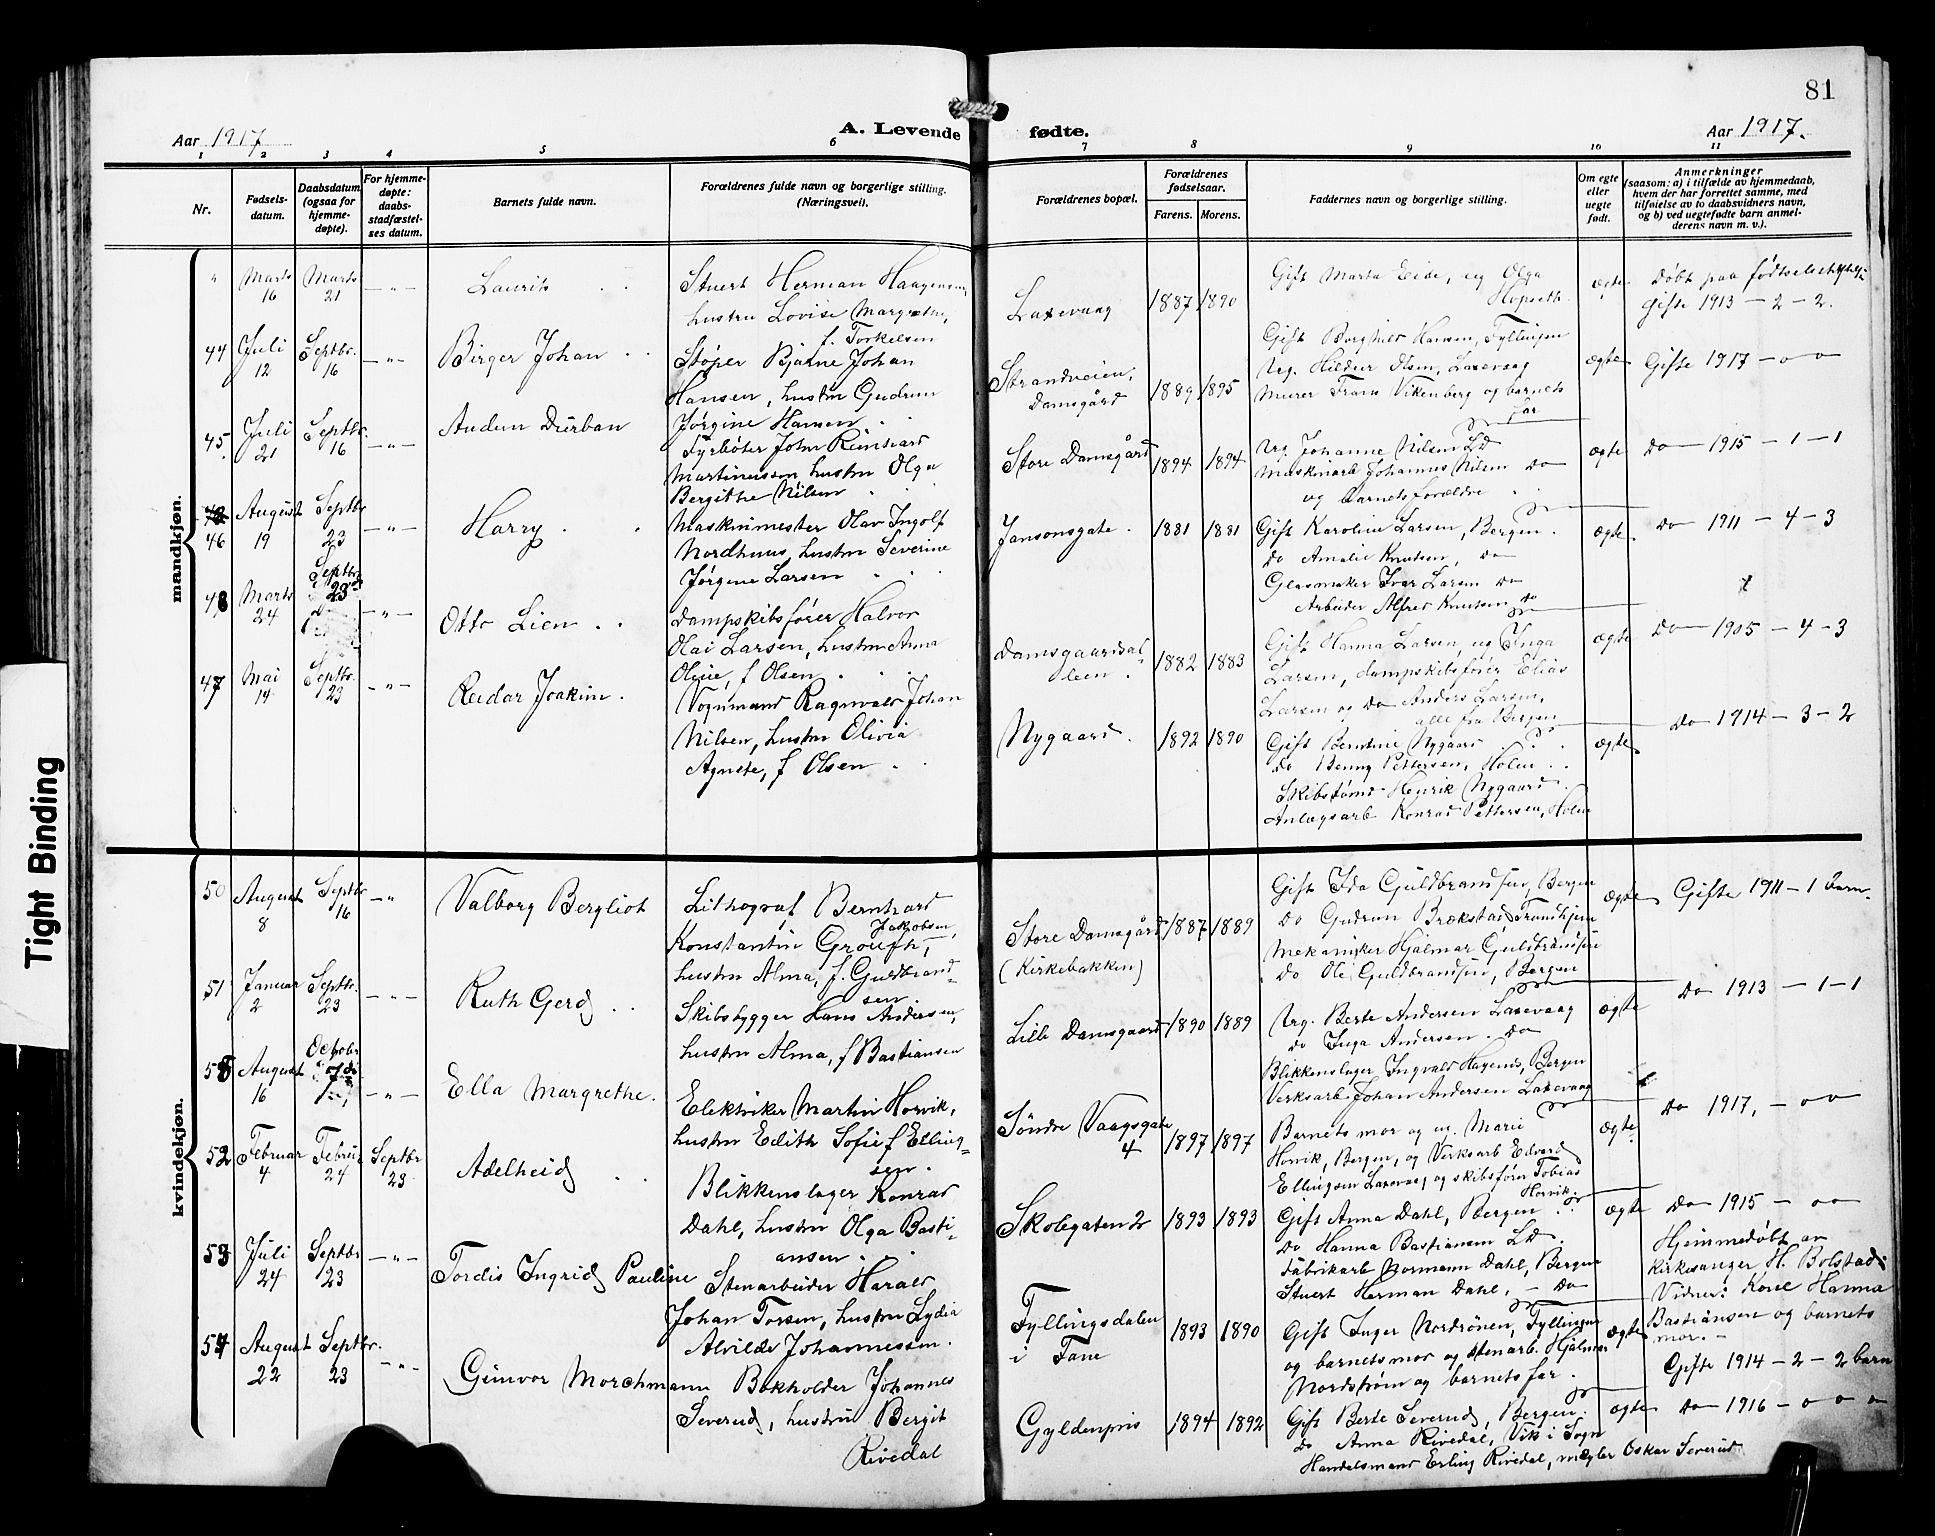 81
Aar 1917
A. Levende fødte.
Aar 1917.
1 2 3 4 5 6 7 8 9 10 11
Nr.
Fødsels-
datum.
Daabsdatum
(ogsaa for
hjemme-
døpte).
For hjemme-
døpte:
daabs-
stadfæstel-
ses datum.
Barnets fulde navn.
Forældrenes fulde navn og borgerlige stilling.
(Næringsvei).
Forældrenes bopæl.
Forældrenes
fødselsaar.
Farens. Morens.
Faddernes navn og borgerlige stilling.
Om egte
eller
uegte
født.
Anmerkninger
(saasom: a) i tilfælde av hjemmedaab,
hvem der har forrettet samme, med
tilføielse av to daabsvidners navn,
og b) ved uegtefødte barn anmel-
derens navn m. v.).
mandkjøn.
" Marts 16 Marts 21 — " —
Laurits
Stuert Herman Haagensen,
hustru Lovise Margrethe,
f. Torkelsen
Laxevaag 1887 1890
Gift Marta Eide, ug Olga
Hopseth
ægte
Døbt paa fødselsstiftelse
Gifte 1913 — 2 — 2.
44 Juli 12 Septbr. 16 — " —
Birger Johan
Støper Bjarne Johan
Hansen, hustru Gudrun
Jørgine Hansen
Strandveien,
Damsgård
1889 1895
Gift Borghild Hansen, Fyllingen
Ug. Hildur Olsen, Laxevaag
Murer Frans Vikenberg og barnets
far
ægte
Gifte 1917 — o — o
45. Juli 21 Septbr. 16 — " —
Audun Durban
Fyrbøter John Reinhard
Martinussen, hustru Olga
Bergithe Nilsen
Store Damsgård 1894 1894
Ug. Johanne Nilsen Ld
Maskinarb Johannes Nilsen do
og barnets forældre
ægte
Do — 1915 — 1 — 1
46 August 19 Septbr 23 — " —
Harry
Maskinmester Olav Ingolf
Nordhuus, hustru Severine
Jørgine Larsen
Jansonsgate. 1881 1881
Gift Karoline Larsen, Bergen.
do Amalie Knutsen, do
Glasmaker Ivar Larsen do
Arbeider Alfred Knutsen do
ægte
Do 1911 — 4 — 3
48 Marts 24 Septbr. 23 — " —
Otto Lien
Dampskibsfører Halvor
Olai Larsen, hustru Anna
Oline, f Olsen
Damsgaardsal-
leen.
1882 1883
Gift Hanna Larsen, ug Inga
Larsen, dampskibsfører Elias
Larsen og do Anders Larsen,
alle fra Bergen
ægte
Do — 1905 — 4 — 3
47 Mai 14 Septbr. 23 — " —
Reidar Joakim.
Vognmand Ragnvald Johan
Nilsen, hustru Olivia
Agnete, f Olsen
Nygaard. 1892 1890
Gift Berntine Nygaard
do Benny Pettersen, Holen
Skibstømr Henrik Nygaard
Anlægsarb Konrad Pettersen, Holen
ægte
Do 1914 — 3 — 2
kvindekjøn.
50 August 8 Septbr 16 — "
Valborg Bergliot
Lithograf Bernhard
Jakobsen,
Konstantin
hustru Alma, f. Guldbrand-
sen
Store Damsgård
(Kirkebakken)
1887 1889
Gift Ida Guldbrandsen, Bergen
do Gudrun Brækstad Trondhjem
Mekaniker Hjalmar Guldbrandsen
do Ole Guldbrandsen, Bergen
ægte
Gifte 1911 — 1 barn.
51 Januar 2 Septbr. 23 — " —
Ruth Gerd
Skibsbygger Hans Andersen,
hustru Alma, f Bastiansen
Lille Damsgaard 1890 1889
Ug. Berte Andersen Laxevaag
do Inga Andersen do
Blikkenslager Ingvald Hagenes, Bergen
Verksarb Johan Andersen Laxevaag
ægte
Do 1913 — 1 — 1
58 August 16 Octobr 7de — " —
Ella Margrethe.
Elektriker Martin Horvik,
hustru Edith Sofie f Elling-
sen.
Søndre Vaagsgate
4
1897 1897
Barnets mor og ug. Marie
Horvik, Bergen, og Verksarb Edvard
Ellingsen Laxevaag og skibsfører Tobias
Horvik.
ægte
Do 1917, — o — o
52 Februar 4 Februar 24 Septbr 23
Adelheid
Blikkenslager Konrad
Dahl, hustru Olga Basti-
ansen
Skolegaten 2 1893 1893
Gift Anna Dahl, Bergen
do Hanna Bastiansen Ld.
Fabrikarb Normann Dahl, Bergen
Stuert Herman Dahl, — do
ægte
Do 1915 — o — o
Hjemmedøbt av
kirkesanger H. Bolstad:
Vidner: Kone Hanna
Bastiansen og barnets
mor. —
53 Juli 24 Septbr 23 — " —
Tordis Ingrid Pauline
Stenarbeider Harald
Johan Torsen, hustru Lydia
Alvilde Johannessen.
Fyllingsdalen
i Fane
1893 1890
Gift Inger Nordrönen, Fyllingen
og barnets mor og stenarb. Hjalmar
Nordstrøm og barnets far.
ægte
Gifte 1914 — 2 — 2 barn
54 August 22 Septbr. 23 — " —
Gunvor Morchmann
Bokholder Johannes
Severud, hustru Bergit
Rivedal
Gyldenpris 1894 1892
Gift Berte Severud, Bergen.
do Anna Rivedal, Vik i Sogn
Handelsmand Erling Rivedal, mægler Oskar Severud
ægte
Do 1916 — o — o
Tight Binding